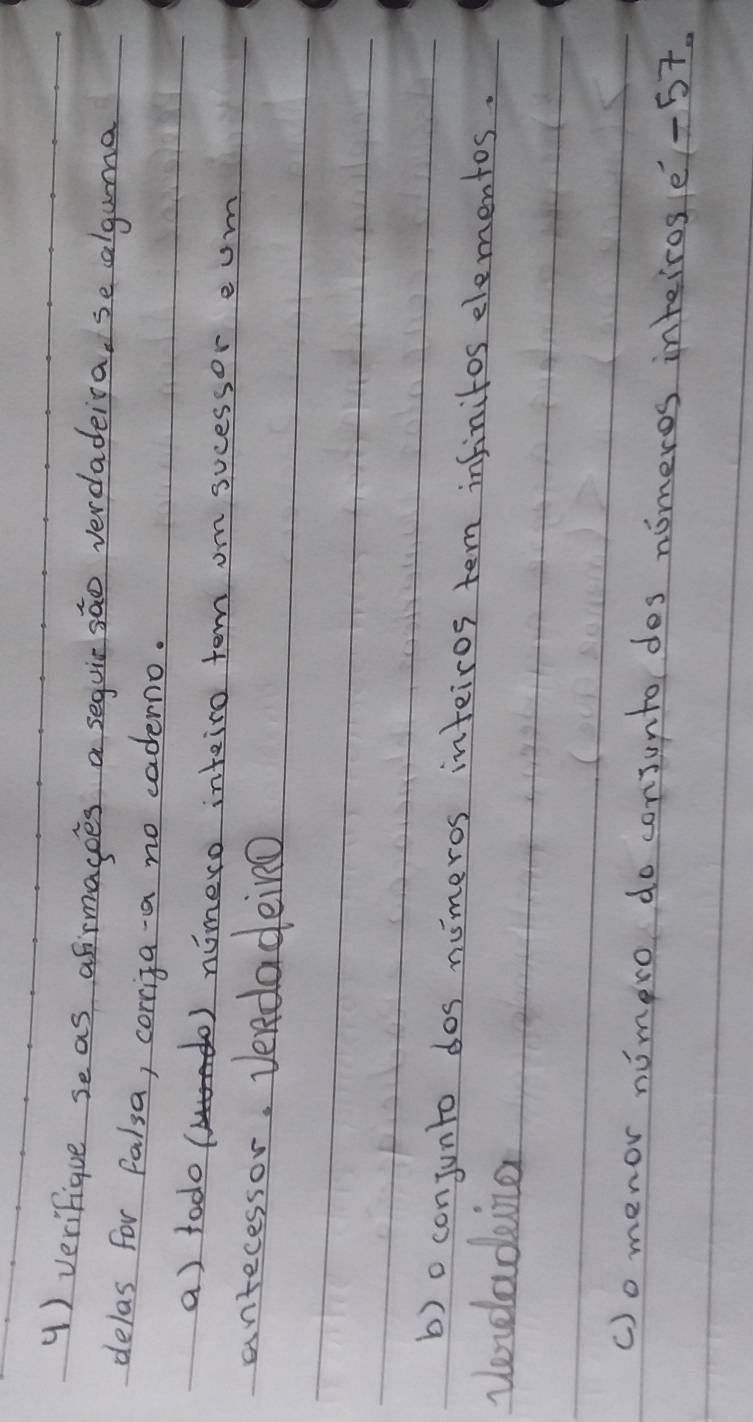 4) verifique se as afirmações a seguir são verdadeira, se alguma
delas for falsa, corrija-a no caderno.
a) todo (mundo) número inteiro tem um sucessor e um
antecessor. Verdadeiro
b) o conjunto dos números inteiros tem infinitos elementos.
Verdadeira
c) o menor número do conjunto dos números inteiros é -57.